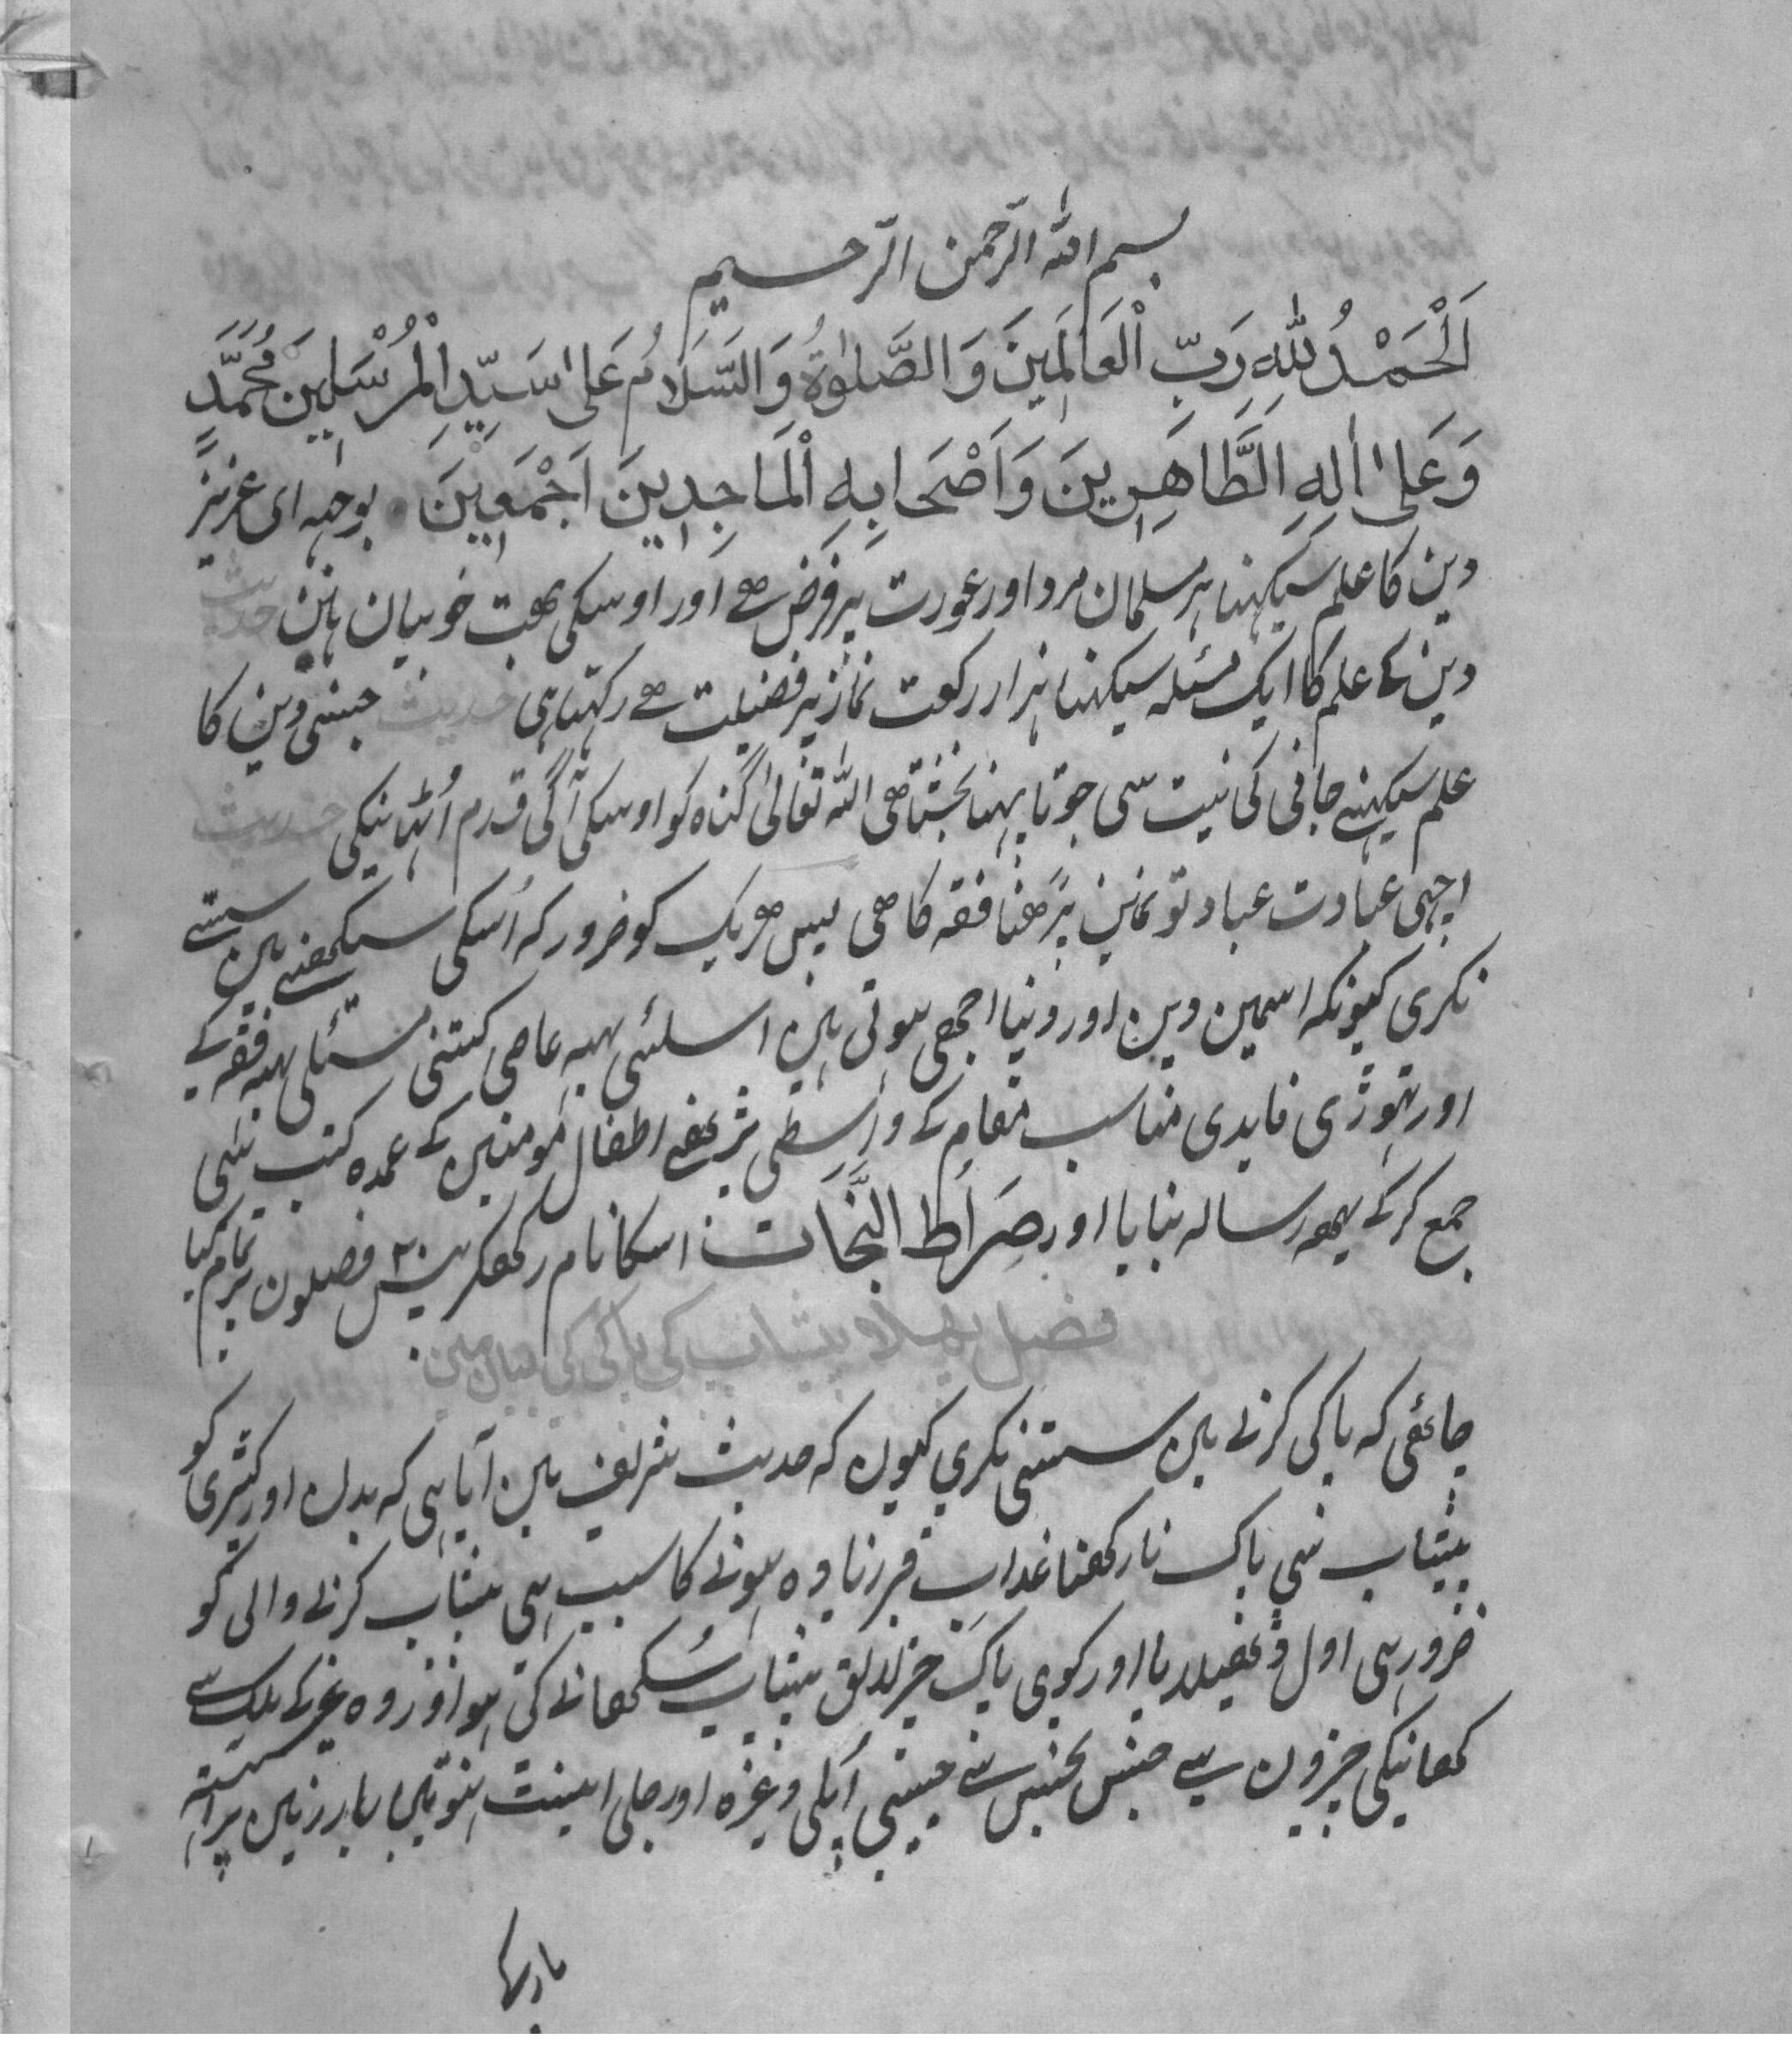 بسم الله الرّحمن الرّحیم
اَلْحَمْدُ لِلّٰهِ رَبِّ الْعَالَمِينَ وَالصَّلوٰةُ وَالسَّلَامُ عَلىٰ سَيِّدِ الْمُرْسَلِينَ مُحَمَّدٍ
وَعَلىٰ اٰلِهِ الطَّاهِرِينَ وَاَصْحَابِهِ الْمَاجِدِينَ اَجْمَعِيْنَ بوجہہ ای عزیز
دین کا علم سیکہنا ہر مسلمان مرد اور عورت پر فرض ہے اور اوسکی بہت خوبیان ہین حدیث
دین کے علم کا ایک مسئلہ سیکہنا ہزار رکعت نماز پر فضیلت ہے رکہتا ہی حدیث جسنی دین کا
علم سیکہنے جانی کی نیت سی جوتا پہنا بخشتا ہی اللّٰہ تعالیٰ گناہ کو اوسکی آگی قدم اُٹہانیکی حدیث
اچہی عبادت عبادتو نمانین پڑھنا فقہ کا ہی پس ھریک کو ضرور کہ اُسکی سیکھنے مین سستے
نکری کیونکہ اسمین دین اور دنیا اچھی ہوتی ہین اسلئی یہہ عاصی کتنی مسئلی یہہ فقہ کے
اور تہوڑی فایدی مناسب مقام کے واسطی پڑھنے اطفال مومنین کے عمدہ کتب سی
جمع کرکے یھہ رسالہ بنایا اور صِرَاطُ النَّجَات اسکا نام رکھکر بیس ۲۰ فصلون پر تمام کیا
فصل پھلا پیشاب کی پاکی کی بیان مین
چاہئی کہ پاکی کرنے مین سستی نکری کیون کہ حدیث شریف مین آیا ہی کہ بدن اور کپڑی کو
پیشاب سی پاک نا رکھنا عذاب قبر زیادہ ہونے کا سبب ہی پیشاب کرنے والی کو
ضرور ہی اول ڈھیلا یا اور کوی پاک چیز لایق پیشاب سُکھانے کی ہو اور وہ غیر کے ملک سے
کھانیکی چیزون سے جنس نجس سے جیسی اُپلی وغیرہ اور جلی اینٹ ہنو تین بار زمین پر